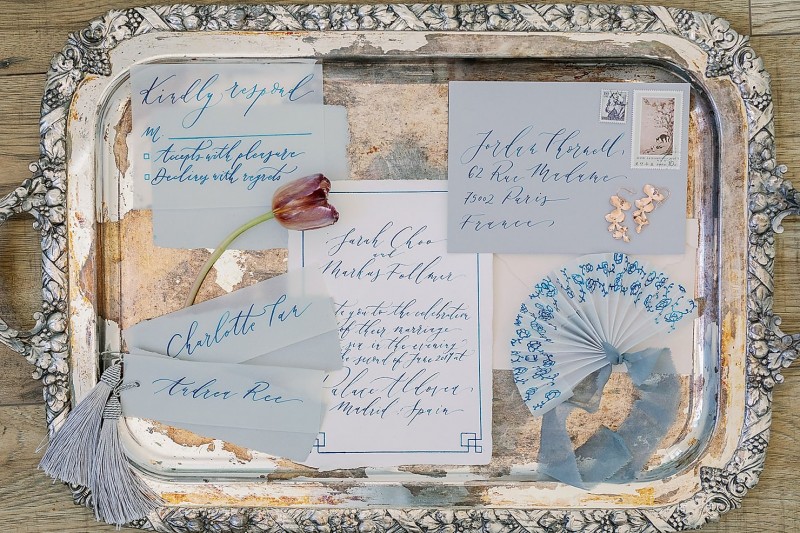 Kindly respond
M
Accepts with pleasure
Declines with regrets
Jordan Thornell,
62 Rue Madame
75002 Paris
France
Sarah Choo
and
Markus Follmer
to the celebration
their marriage
in the evening
second of June
Madrid, Spain
Charlotte Tan
Andrea Ree